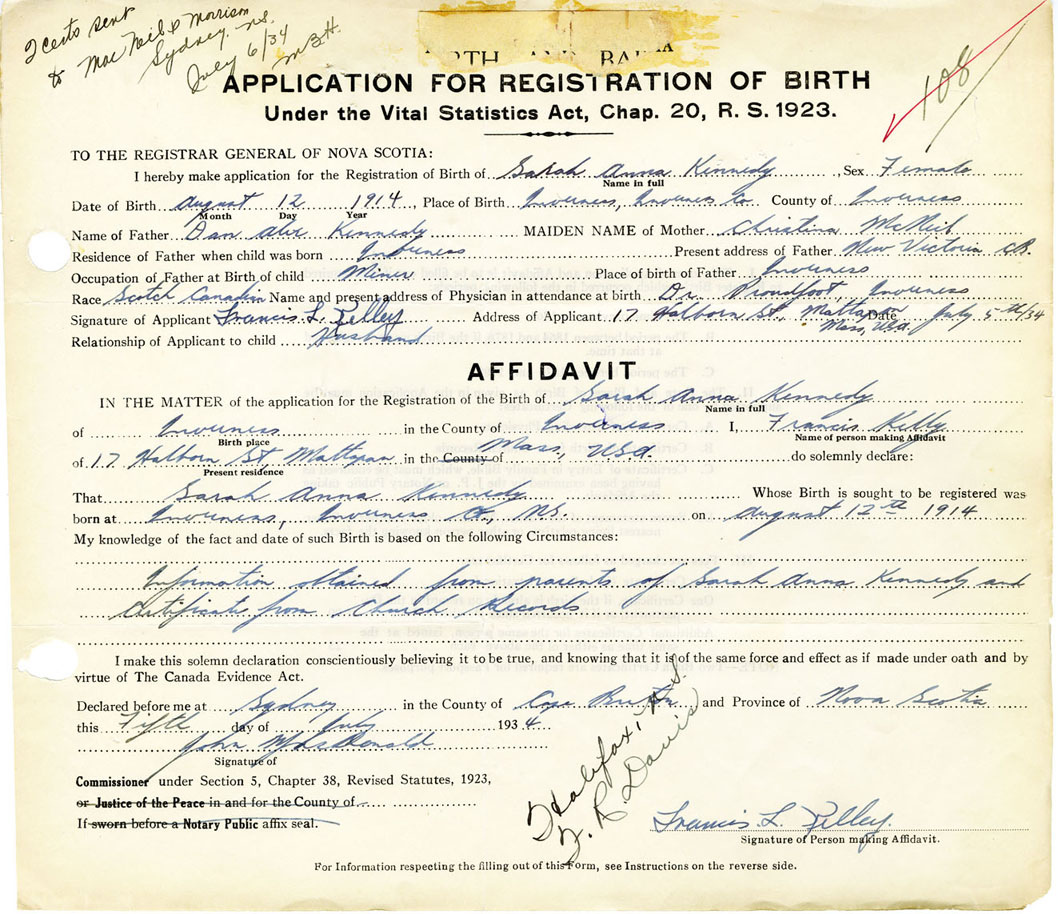 2 certs sent
to Mac Neil & Morrison
Sydney, N.S.
July 6/34
M.B.H.
108
APPLICATION FOR REGISTRATION OF BIRTH
Under the Vital Statistics Act, Chap. 20, R. S. 1923.
TO THE REGISTRAR GENERAL OF NOVA SCOTIA:
I hereby make application for the Registration of Birth of Sarah Anna Kennedy, Sex Female
Name in full
Date of Birth August 12 1914, Place of Birth Inverness, Inverness Co. County of Inverness
Month Day Year
Name of Father Dan Alex Kennedy MAIDEN NAME of Mother Christina McNeil
Residence of Father when child was born Inverness Present address of Father New Victoria C.B.
Occupation of Father at Birth of child Miner Place of birth of Father Inverness
Race Scotch Canadian Name and present address of Physician in attendance at birth Dr. Proudfoot, Inverness
Signature of Applicant Francis L. Kelley Address of Applicant 17 Halborn St, Mattapan Date July 5th/34
Mass, USA.
Relationship of Applicant to child Husband
AFFIDAVIT
IN THE MATTER of the application for the Registration of the Birth of Sarah Anna Kennedy
Name in full
of Inverness in the County of Inverness I, Francis Kelly
Birth place Name of person making Affidavit
of 17 Halborn St, Mattapan, in the County of Mass, USA do solemnly declare:
Present residence
That Sarah Anna Kennedy Whose Birth is sought to be registered was
born at Inverness, Inverness Co, N.S. on August 12th 1914
My knowledge of the fact and date of such Birth is based on the following Circumstances:
Information obtained from parents of Sarah Anna Kennedy and
Certificate from Church Records
I make this solemn declaration conscientiously believing it to be true, and knowing that it is of the same force and effect as if made under oath and by
virtue of The Canada Evidence Act.
Declared before me at Sydney in the County of Cape Breton and Province of Nova Scotia
this Fifth day of July 1934
John MacDonald
Signature of
Commissioner under Section 5, Chapter 38, Revised Statutes, 1923,
or Justice of the Peace in and for the County of
If sworn before a Notary Public affix seal.
Halifax, N.S.
R. Davis
Francis L. Kelley.
Signature of Person making Affidavit.
For Information respecting the filling out of this Form, see Instructions on the reverse side.